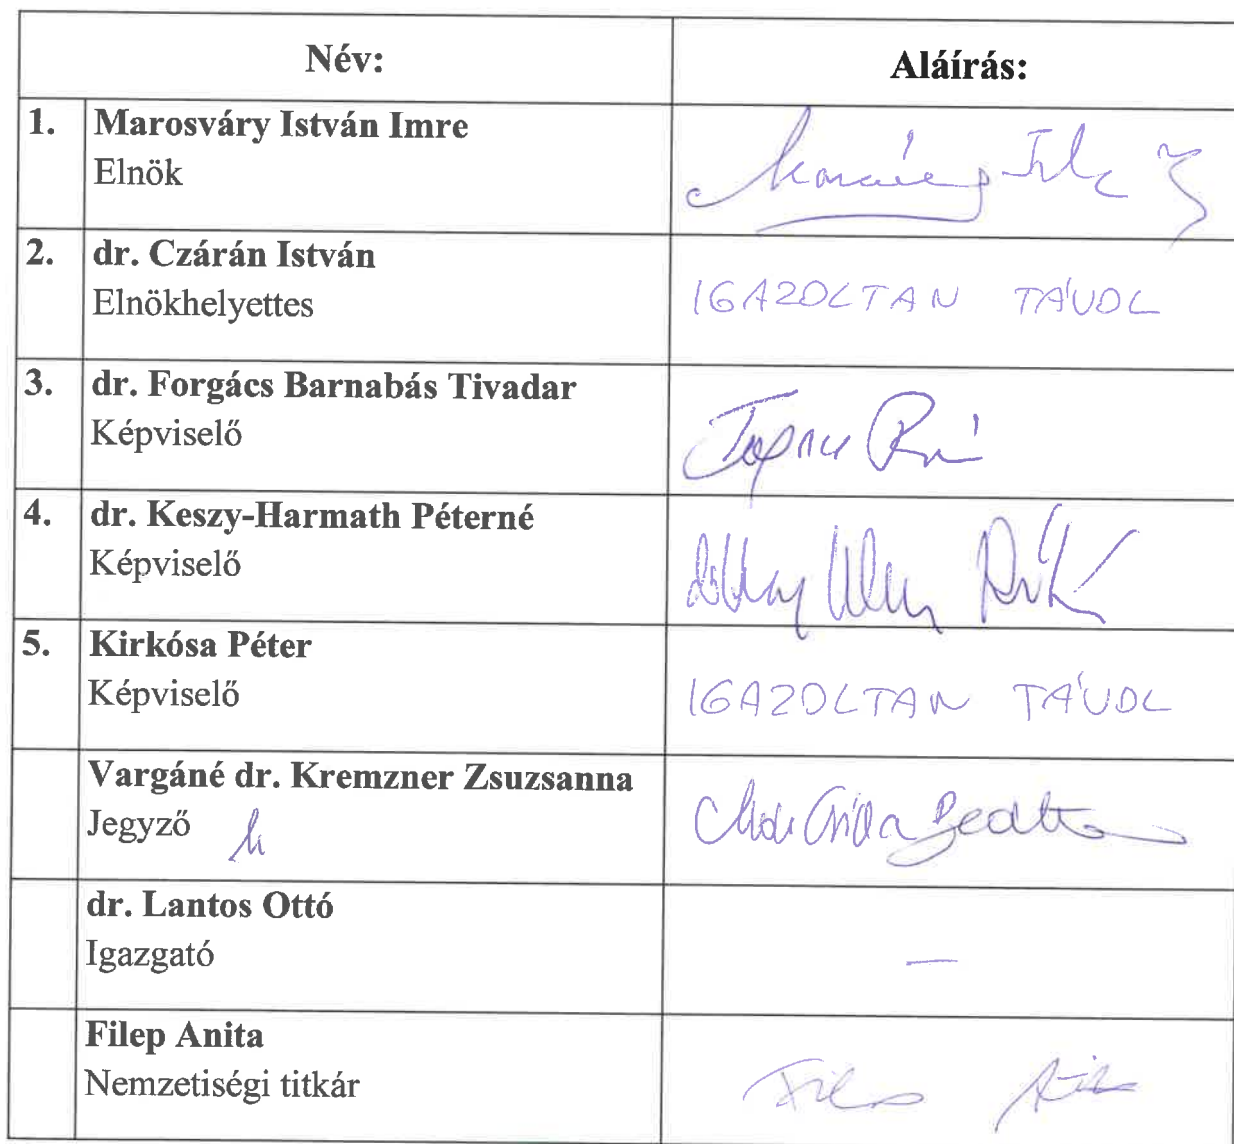 Név:
Aláírás:
1.
Marosváry István Imre
Elnök
2.
dr. Czárán István
Elnökhelyettes
IGAZOLTAN TÁVOL
3.
dr. Forgács Barnabás Tivadar
Képviselő
4.
dr. Keszy-Harmath Péterné
Képviselő
5.
Kirkósa Péter
Képviselő
IGAZOLTAN TÁVOL
Vargáné dr. Kremzner Zsuzsanna
Jegyző
dr. Lantos Ottó
Igazgató
—
Filep Anita
Nemzetiségi titkár